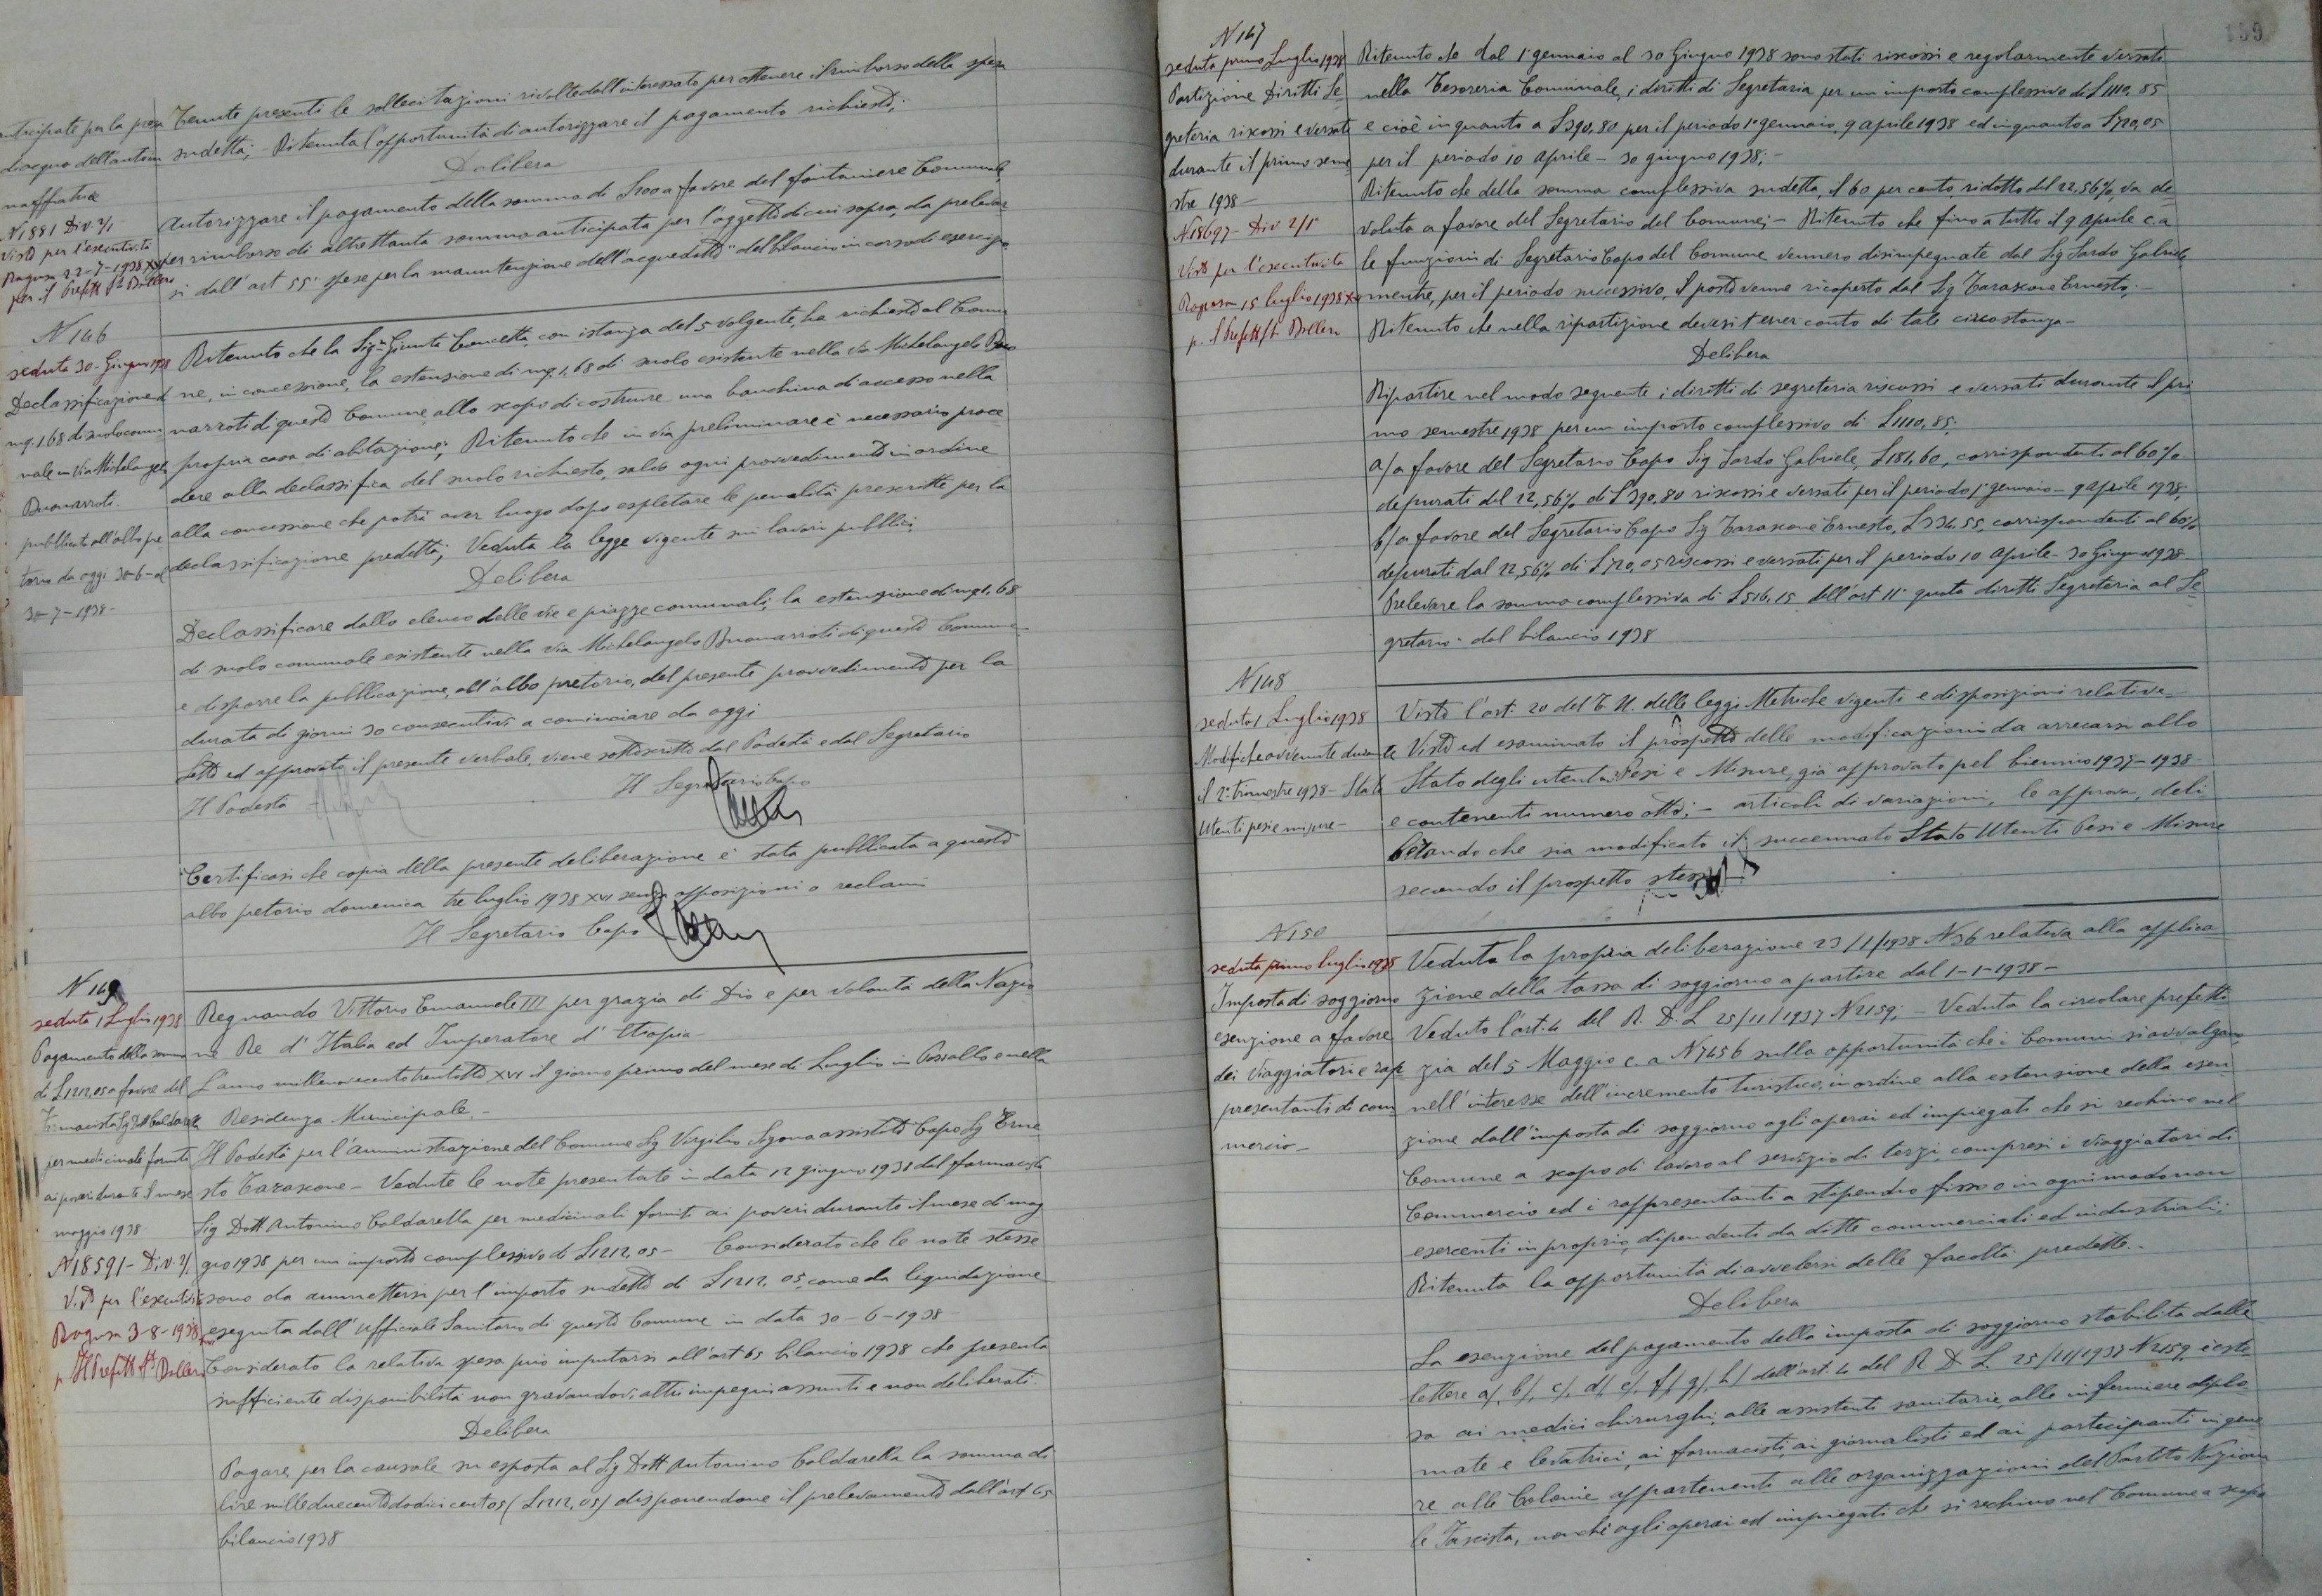 anticipate per la presa
d'acqua dell'antica
naffatrice
N 1881 Div 2/1
Visto per l'esecutività
Ragusa 22-7-1938 XVI
per il Prefetto
Tenute presenti le sollecitazioni rivolte dall'interessato per ottenere il rimborso della spesa
sudetta; - Ritenuta l'opportunità di autorizzare il pagamento richiesto;
Delibera
Autorizzare il pagamento della somma di a favore del fontaniere Comunale,
per rimborso di altrettanta somma anticipata per l'oggetto di cui sopra, da prelevar
si dall'art 55: spese per la manutenzione dell'acquedotto" del bilancio in corso di esercizio
N 146
seduta 30-Giugno 1938
Declassificazione di
mq. 1,68 di suolo comu
nale in Via Michelangelo
Buonarroti.
pubblicata all'albo pre
torio da oggi 30-6- al
30-7-1938-
Ritenuto che la Sig.ra Giunta Concetta, con istanza del 5 volgente, ha richiesto al Comu
ne, in concessione, la estensione di mq. 1,68 di suolo esistente nella via Michelangelo Buo
narroti di questo Comune, allo scopo di costruire una banchina di accesso nella
propria casa di abitazione; Ritenuto che in via preliminare è necessario proce
dere alla declassifica del suolo richiesto, salvo ogni provvedimento in ordine
alla concessione che potrà aver luogo dopo espletare le penalità prescritte per la
declassificazione predetta; Veduta la legge vigente sui lavori pubblici;
Delibera
Declassificare dallo elenco delle vie e piazze comunali, la estensione di mq 1,68
di suolo comunale esistente nella via Michelangelo Buonarroti di questo Comune
e disporre la pubblicazione, all'albo pretorio, del presente provvedimento per la
durata di giorni 30 consecutivi a cominciare da oggi
Letto ed approvato il presente verbale, viene sottoscritto dal Podestà e dal Segretario
Il Podestà Il Segretario Capo
Certificasi che copia della presente deliberazione è stata pubblicata a questo
albo petorio domenica tre luglio 1938 XVI senza opposizioni o reclami
Il Segretario Capo
N 149
seduta 1 Luglio 1938
Pagamento della somma
di L 1212,05 a favore del
Farmacista Sg Dott Caldarella
per medicinali forniti
ai poveri durante il mese
maggio 1938
N 18591 - Div 2/1
Visto per l'esecutività
Ragusa 3-8-1938
p. Il Prefetto
Regnando Vittorio Emanuele III per grazia di Dio e per volontà della Nazio
ne Re d'Italia ed Imperatore d'Etiopia
L'anno millenovecentotrentotto XVI il giorno primo del mese di Luglio in Pozzallo e nella
Residenza Municipale. -
Il Podestà per l'amministrazione del Comune Sg Virgilio assistito Capo Sg Erne
sto Tarascone - Vedute le note presentate in data 12 giugno 1938 dal farmacista
Sig Dott Antonino Caldarella per medicinali forniti ai poveri durante il mese di mag
gio 1938 per un importo complessivo di L 1212,05 - Considerato che le note stesse
sono da ammettersi per l'importo sudetto di L 1212,05, come da liquidazione
eseguita dall'Ufficiale Sanitario di questo Comune in data 30-6-1938
Considerato la relativa spesa può imputarsi all'art 65 bilancio 1938 che presenta
sufficiente disponibilità non gravandovi altri impegni assunti e non deliberati.
Delibera
Pagare, per la causale su esposta al Sg Dott Antonino Caldarella la somma di
lire milleduecentododici cent 05 (L 1212,05) disponendone il prelevamento dall'art 65
bilancio 1938
159
N 147
seduta primo Luglio 1938
Partizione Diritti Se
greteria riscossi e versati
durante il primo seme
stre 1938 -
N 18697 - Div 2/1
Visto per l'esecutività
Ragusa 15 luglio 1938 XVI
p. Il Prefetto
Ritenuto che dal 1° gennaio al 30 Giugno 1938 sono stati riscossi e regolarmente versati
nella Tesoreria Comunale, i diritti di Segretaria per un importo complessivo di L 1110,85
e cioè in quanto a L 390,80 per il periodo 1° gennaio, 9 aprile 1938 ed in quanto a L 720,05
per il periodo 10 aprile - 30 giugno 1938; -
Ritenuto che della somma complessiva sudetta, il 60 per cento ridotto del 22,56%, va de
voluta a favore del Segretario del Comune; - Ritenuto che fino a tutto il 9 aprile c.a
le funzioni di Segretario Capo del Comune vennero disimpegnate dal Sig Sardo Gabriele
mentre, per il periodo successivo, il posto venne ricoperto dal Sig Tarascone Ernesto; -
Ritenuto che nella ripartizione devesi tener conto di tale circostanza -
Delibera
Ripartire nel modo seguente i diritti di segreteria riscossi e versati durante il pri
mo semestre 1938 per un importo complessivo di L 1110,85;
a/ a favore del Segretario Capo Sig Sardo Gabriele, L 181,60, corrispondenti al 60%
depurati del 22,56% di L 390,80 riscossi e versati per il periodo 1° gennaio - 9 aprile 1938,
b/ a favore del Segretario Capo Sig Tarascone Ernesto, L 334,55, corrispondenti al 60%
depurati dal 22,56% di L 720,05 riscossi e versati per il periodo 10 aprile - 30 Giugno 1938
Prelevare la somma complessiva di L 516,15 dall'art 11° quota diritti Segreteria al Se
gretario - del bilancio 1938
N 148
seduta 1 Luglio 1938
Modifiche avvenute durante
il 2° trimestre 1938 - Stato
Utenti pesi e misure -
Visto l'art. 20 del T. U. delle leggi Metriche vigenti e disposizioni relative
Visto ed esaminato il prospetto delle modificazioni da arrecarsi allo
Stato degli utenti Pesi e Misure, già approvato pel biennio 1937-1938
e contenenti numero otto; - articoli di variazioni, le approva, deli
berando che sia modificato il succennato Stato Utenti Pesi e Misure
secondo il prospetto stesso
N 150
seduta primo luglio 1938
Imposta di soggiorno
esenzione a favore
dei Viaggiatori e rap
presentanti di com
mercio -
Veduta la propria deliberazione 23/1/1938 N 36 relativa alla applica
zione della tassa di soggiorno a partire dal 1-1-1938 -
Veduto l'art. 4 del R. D. L 25/11/1937 N 2159; - Veduta la circolare prefetti
zia del 5 Maggio c. a N 7456 sulla opportunità che i Comuni si avvalgano,
nell'interesse dell'incremento turistico, in ordine alla estensione della esen
zione dall'imposta di soggiorno agli operai ed impiegati che si rechino nel
Comune a scopo di lavoro al servizio di terzi, compresi i viaggiatori di
Commercio ed i rappresentanti a stipendio fisso o in ogni modo non
esercenti in proprio, dipendenti da ditte commerciali ed industriali;
Ritenuta la opportunità di avvelersi delle facoltà predette. -
Delibera
La esenzione del pagamento della imposta di soggiorno stabilita dalle
lettere a/, b/, c/, d/, e/, f/, g/, h/ dell'art. 4 del R D L 25/11/1937 N 2159, è este
sa ai medici chirurghi, alle assistenti sanitarie, alle infermiere diplo
mate e levatrici, ai farmacisti, ai giornalisti ed ai partecipanti in gene
re alle Colonie appartenenti alle organizzazioni del Partito Naziona
le Fascista, nonché agli operai ed impiegati che si rechino nel Comune a scopo